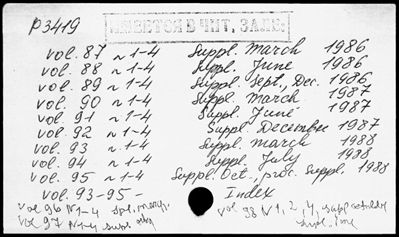 P3419
ИМЕЕТСЯ В ЧИТ. ЗАЛЕ.
vol. 87 N 1-4 Suppl. March 1986
vol. 88 N 1-4 Suppl. June 1986
vol. 89 N 1-4 Suppl. Sept., Dec. 1986
vol. 90 N 1-4 Suppl. March 1987
vol. 91 N 1-4 Suppl. June 1987
vol. 92 N 1-4 Suppl. December 1987
vol. 93 N 1-4 Suppl. March 1988
vol. 94 N 1-4 Suppl. July 1988
vol. 95 N 1-4 Suppl. Oct., proc. Suppl. 1988
vol. 93-95- Index
vol 96 N 1-4
vol 97 N 1-4
vol 98 N 1, 2, 4,